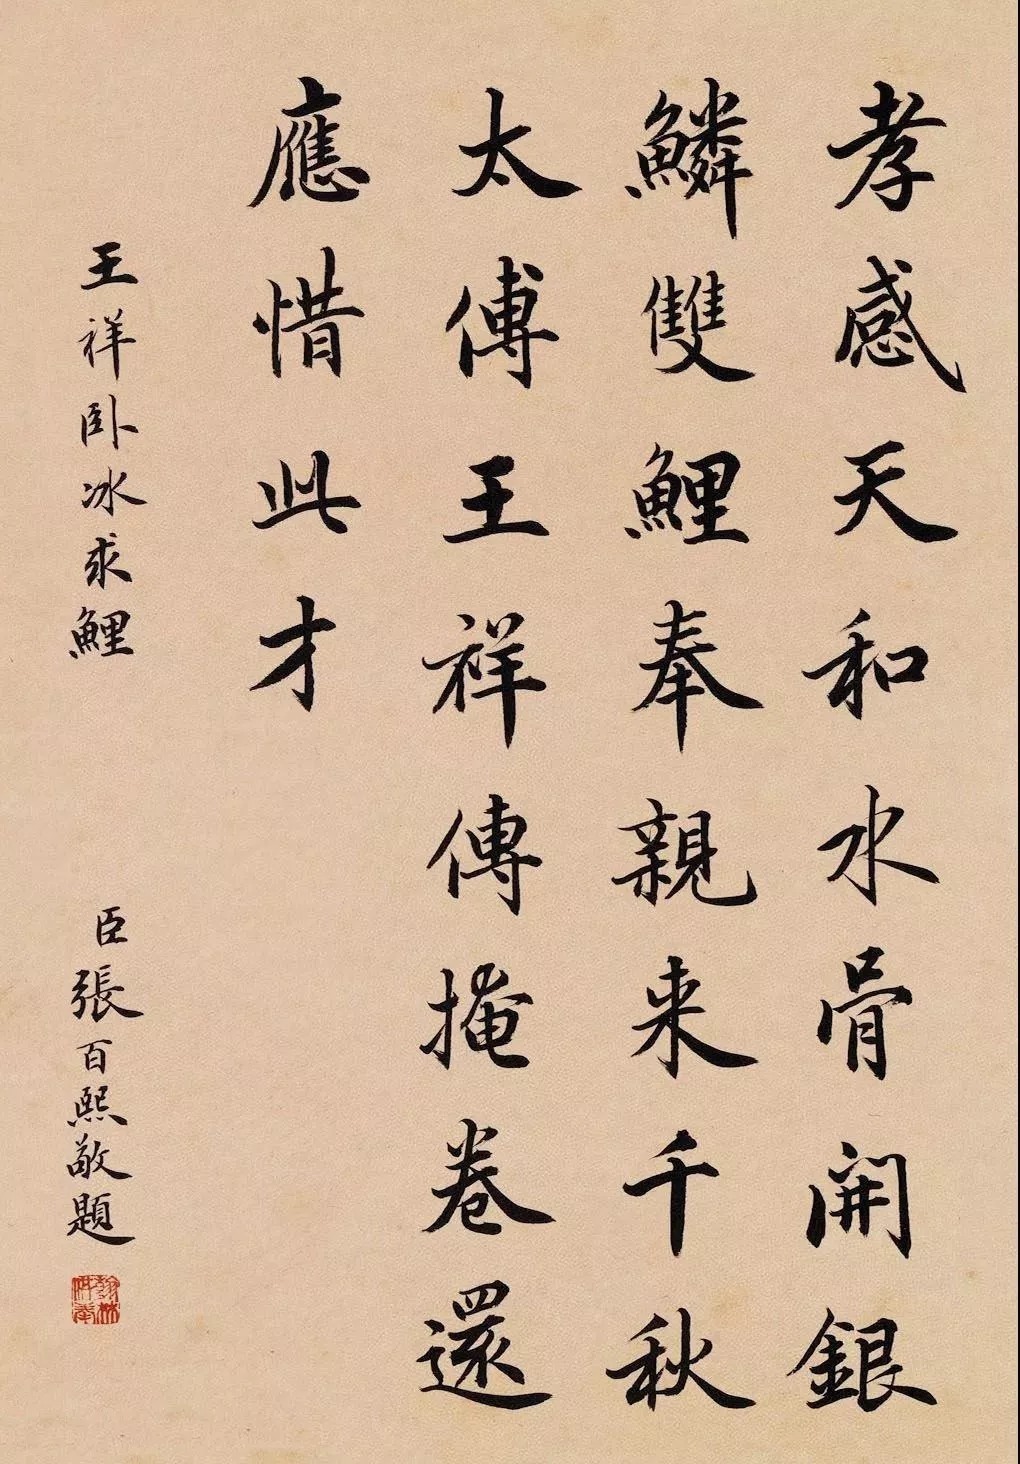 孝感天和水骨開銀
鱗雙鯉奉親来千秋
太傅王祥傳掩卷還
應惜此才
王祥卧冰求鯉
臣張百熙敬題
翰林供奉